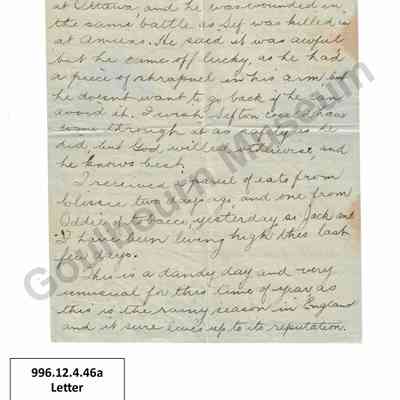 at Ottawa, and he was wounded in
the same battle as Sef was killed in
at Amiens. He said it was awful
but he came off lucky, as he had
a piece of shrapnel in his arm but
he doesnt want to go back if he can
avoid it. I wish Sefton could have
come through it as safely as he
did, but God willed otherwise, and
he knows best.
I received a parcel of eats from
Clissie two days ago, and one from
Oddie of tobacco, yesterday, so Jack and
I have been living high this last
few days.
This is a dandy day and very
unusual for this time of year as
this is the rainy season in England
and it sure lives up to its reputation.
Goulbourn Museum
996.12.4.46a
Letter